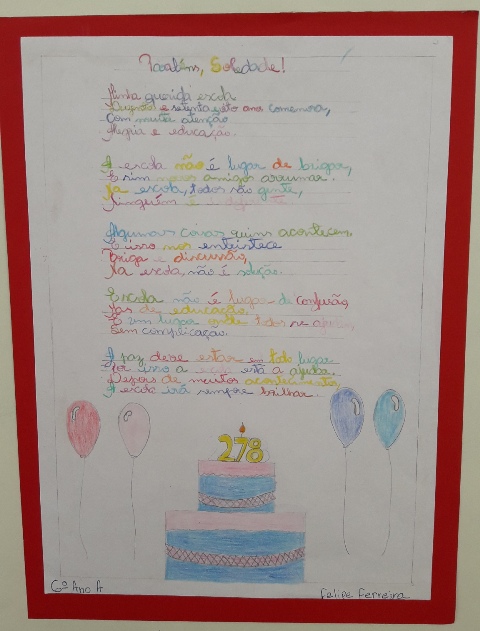 Parabéns, Soledade!
Minha querida escola
Duzentos e setenta e oito anos comemora,
Com muita atenção
Alegria e educação.
A escola não é lugar de brigar,
E sim novos amigos arrumar.
Na escola, todos são gente,
Ninguém é
Algumas coisas ruins acontecem.
E isso nos entristece
Briga e discussão,
Na escola, não é solução.
Escola não é lugar de confusão,
Mas de educação.
É um lugar onde todos se ajudam,
Sem complicação.
A paz deve estar em todo lugar
Por isso a escola está a ajudar.
Depois de muitos acontecimentos,
A escola irá sempre brilhar.
278
6º Ano A
Felipe Ferreira